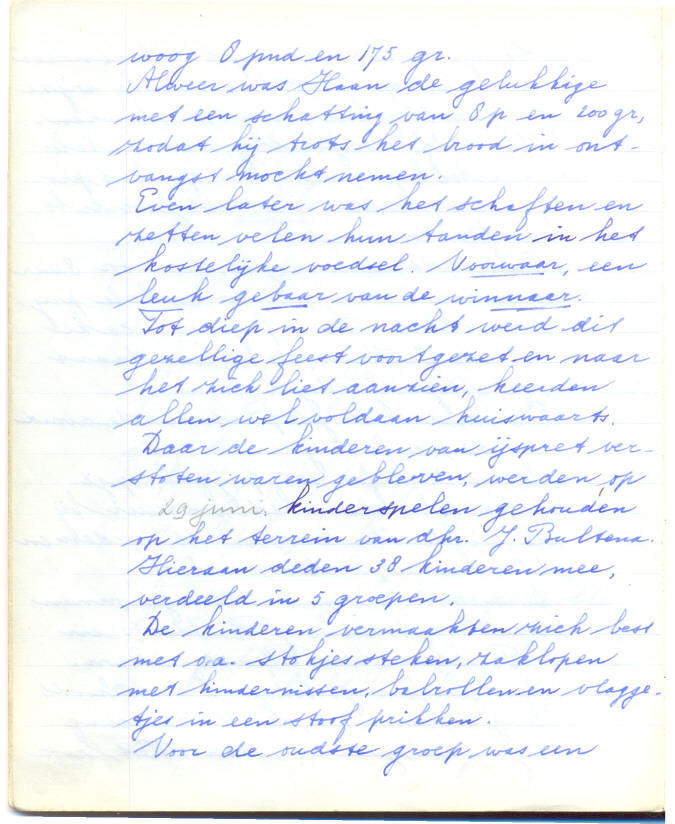 woog 8 pnd en 175 gr.
Alweer was Haan de gelukkige
met een schatting van 8 p en 200 gr,
zodat hij trots het brood in ont-
vangst mocht nemen.
Even later was het schaften en
zetten velen hun tanden in het
kostelijke voedsel. Voorwaar, een
leuk gebaar van de winnaar.
Tot diep in de nacht werd dit
gezellige feest voortgezet en naar
het zich liet aanzien, keerden
allen wel voldaan huiswaarts.
Daar de kinderen van ijspret ver-
stoten waren gebleven, werden op
29 juni. kinderspelen gehouden
op het terrein van dhr. J. Bultena.
Hieraan deden 38 kinderen mee,
verdeeld in 5 groepen.
De kinderen vermaakten zich best
met o.a. stokjes steken, zaklopen
met hindernissen, balrollen en vlagge-
tjes in een stoof prikken.
Voor de oudste groep was een